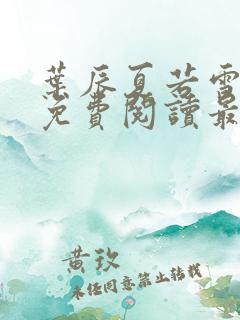 葉辰夏若雪
免費閱讀最
黄玫
未经同意禁止转载